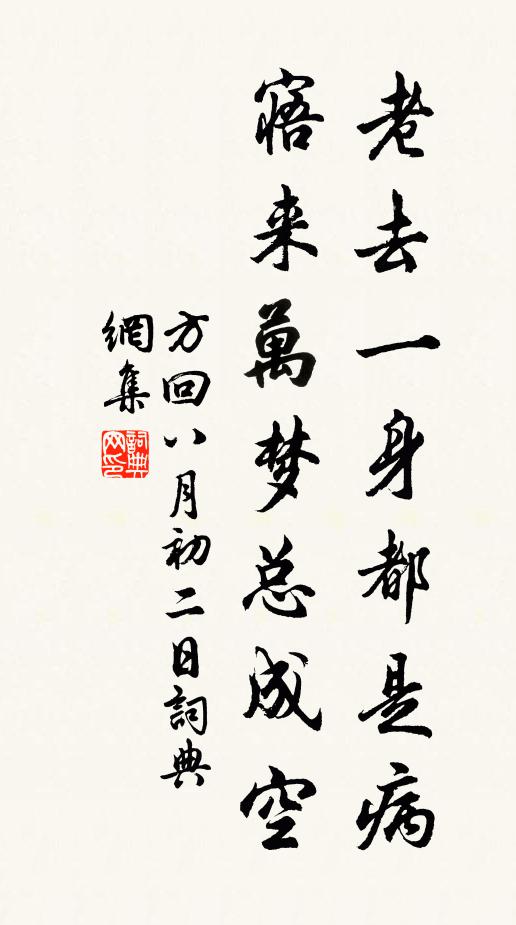 老去一身都是病
寤来萬梦总成空
方回八月初二日詞典
網集
詞典网印